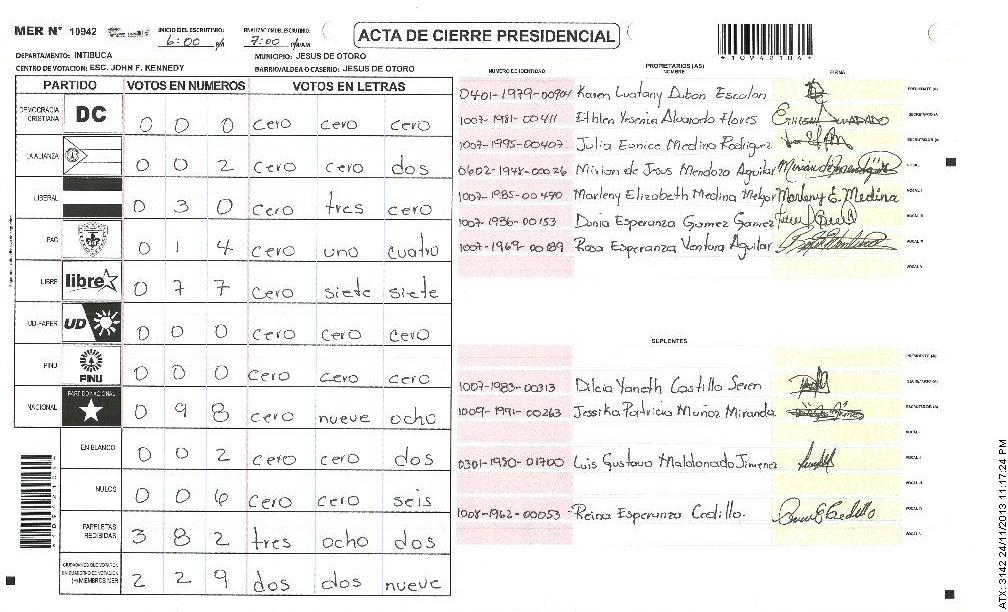 MER N° 10942
INICIO DEL ESCRUTINIO:
6:00
FINALIZACION DEL ESCRUTINIO:
7:00
ACTA DE CIERRE PRESIDENCIAL
*10942104*
DEPARTAMENTO: INTIBUCA
MUNICIPIO: JESUS DE OTORO
CENTRO DE VOTACION: ESC. JOHN F. KENNEDY
BARRIO/ALDEA O CASERIO: JESUS DE OTORO
PARTIDO VOTOS EN NUMEROS VOTOS EN LETRAS
DEMOCRACIA CRISTIANA DC 0 0 0 cero cero cero
LA ALIANZA 0 0 2 cero cero dos
LIBERAL 0 3 0 cero tres cero
PAC 0 1 4 cero uno cuatro
LIBRE libre 0 7 7 cero siete siete
UD-FAPER UD 0 0 0 cero cero cero
PINU PINU 0 0 0 cero cero cero
NACIONAL PARTIDO NACIONAL 0 9 8 cero nueve ocho
EN BLANCO 0 0 2 cero cero dos
NULOS 0 0 6 cero cero seis
PAPELETAS RECIBIDAS 3 8 2 tres ocho dos
CIUDADANOS QUE VOTARON EN CUADERNO DE VOTACION (+) MIEMBROS MER 2 2 9 dos dos nueve
PROPRIETARIOS (AS)
NUMERO DE IDENTIDAD NOMBRE FIRMA
0401-1979-00904 Karen Luatany Dubon Escalon PRESIDENTE (A)
1007-1981-00411 Ethlen Yesenia Alvarado Flores SECRETARIO (A)
1007-1995-00407 Julia Eunice Medina Rodriguez ESCRUTADOR (A)
0602-1948-00026 Mirian de Jesus Mendoza Aguilar VOCAL I
1007-1985-00490 Marleny Elizabeth Medina Melgar Marleny E. Medina VOCAL II
1007-1986-00153 Dunia Esperanza Gomez Gomez VOCAL III
1007-1969-00189 Rosa Esperanza Ventura Aguilar VOCAL IV
VOCAL V
SUPLENTES
PRESIDENTE (A)
1007-1983-00313 Dilcia Yaneth Castillo Seren SECRETARIO (A)
1009-1991-00263 Jessika Patricia Muñoz Miranda ESCRUTADOR (A)
VOCAL I
0301-1950-01700 Luis Gustavo Maldonado Jimenez VOCAL II
VOCAL III
1008-1962-00053 Reina Esperanza Cedillo. VOCAL IV
VOCAL V
ATX: 3142 24/11/2013 11:17:24 PM